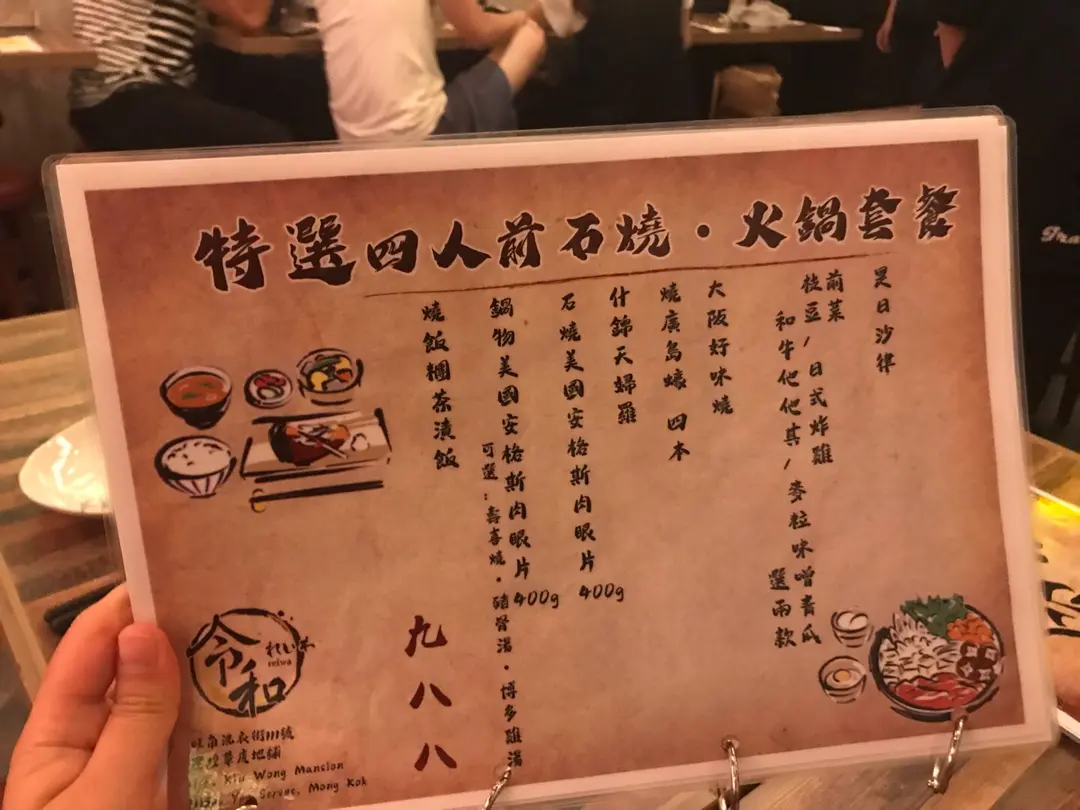 特選四人前石燒・火鍋套餐
是日沙律
前菜
枝豆/日式炸雞
和牛他他其/麥粒味噌青瓜
選兩款
大阪好味燒
燒廣島蠔 四本
什錦天婦羅
石燒美國安格斯肉眼片 400g
鍋物美國安格斯肉眼片 400g
可選:壽喜燒・豬骨湯・博多雞湯
燒飯糰茶漬飯
九八八
令和
れいわ
reiwa
旺角洗衣街
地舖
Wong Mansion
Mong Kok